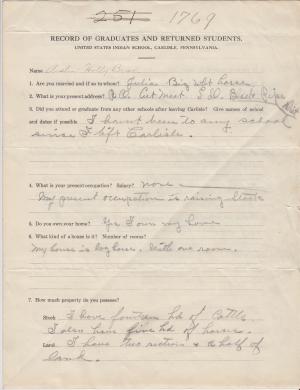 251 1769
RECORD OF GRADUATES AND RETURNED STUDENTS.
UNITED STATES INDIAN SCHOOL, CARLISLE, PENNSYLVANIA.
Name
1. Are you married and if so to whom? Julia Big
2. What is your present address? Cut Meat S.D.
3. Did you attend or graduate from any other schools after leaving Carlisle? Give names of school
and dates if possible. I haven't been to any school
since I left Carlisle.
4. What is your present occupation? Salary? none
My present occupation is raising Stock
5. Do you own your home? Yes I own my home
6. What kind of a house is it? Number of rooms?
My house is log house. With one room.
7. How much property do you possess?
Stock I have fourteen hd of Cattle.
I also have five hd of horses.
Land I have two sections & half of
land.